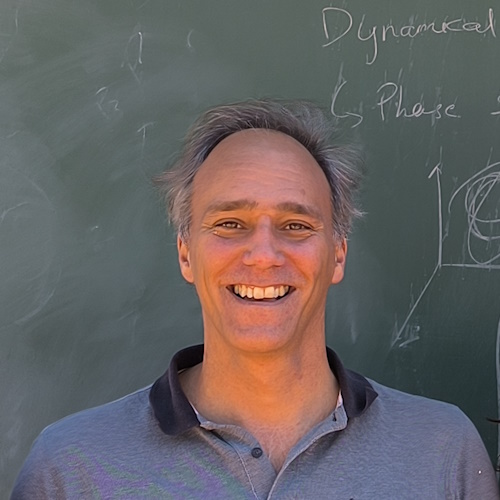 Dynamical
↳ Phase